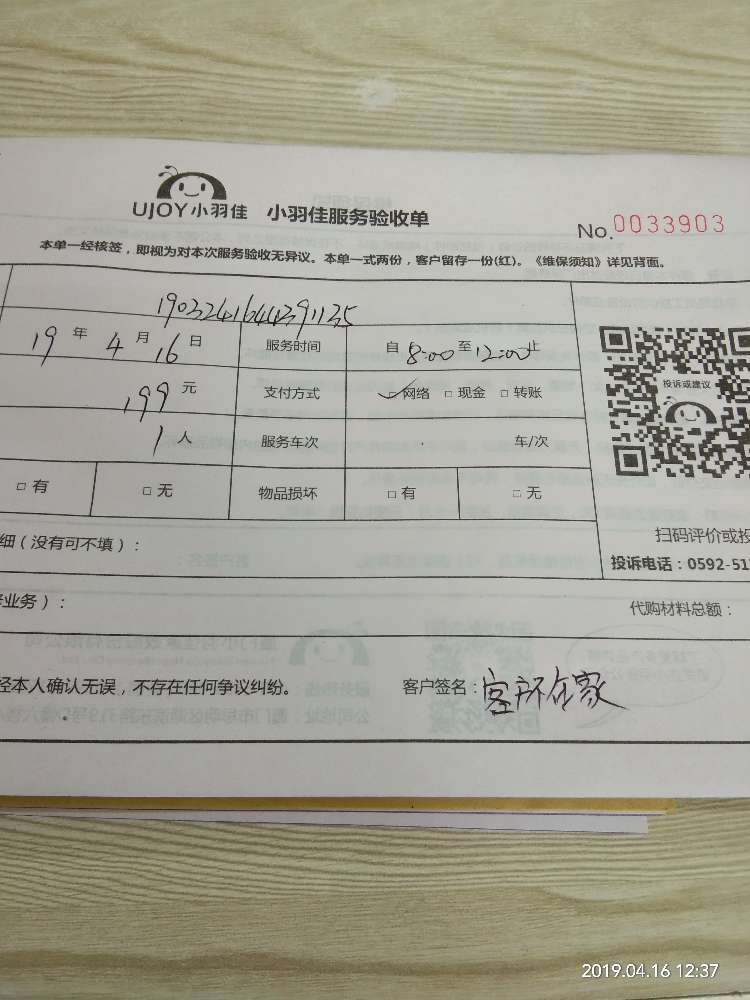 UJOY小羽佳 小羽佳服务验收单
No.0033903
本单一经核签，即视为对本次服务验收无异议。本单一式两份，客户留存一份(红)。《维保须知》详见背面。
19 年 4 月 16 日 服务时间 自 8:00 至 12:00 止
投诉或建议
199 元 支付方式 ✓网络 □ 现金 □ 转账
1 人 服务车次 车/次
□ 有 □ 无 物品损坏 □ 有 □ 无
细（没有可不填）：
扫码评价或投
投诉电话：0592-51
业务）：
代购材料总额：
经本人确认无误，不存在任何争议纠纷。 客户签名：客户不在家
2019.04.16 12:37